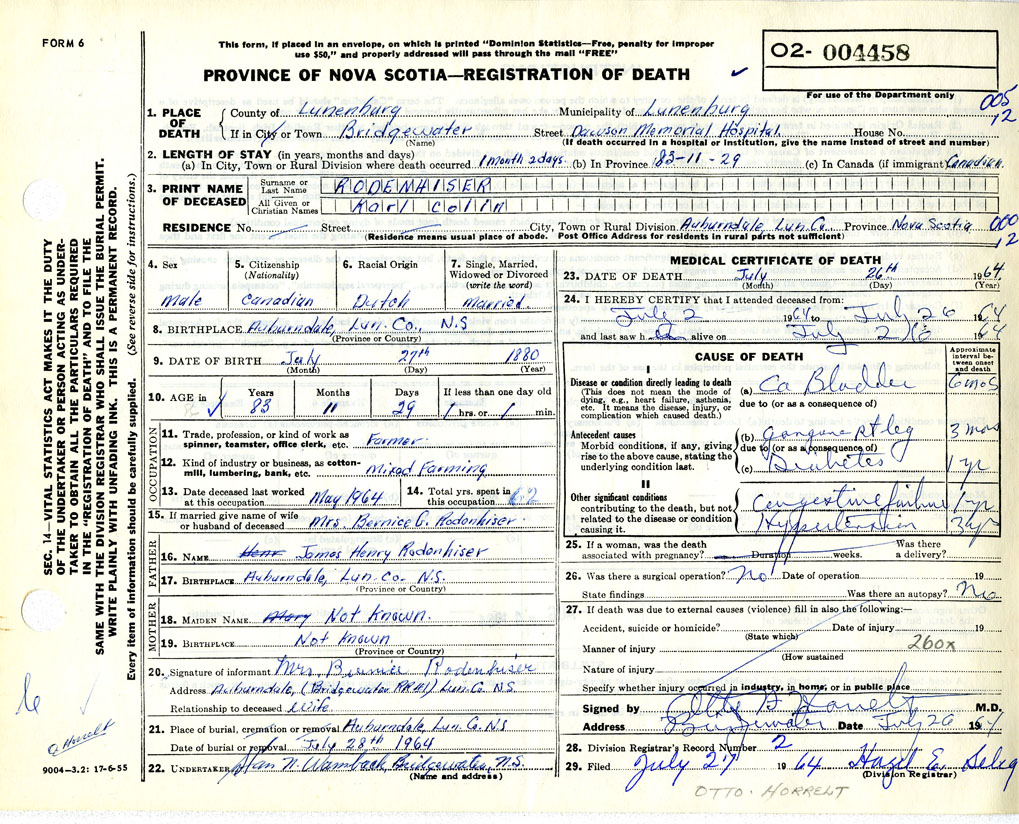 FORM 6
This form, if placed in an envelope, on which is printed "Dominion Statistics—Free, penalty for improper
use $50," and properly addressed will pass through the mail "FREE"
O2- 004458
PROVINCE OF NOVA SCOTIA—REGISTRATION OF DEATH
For use of the Department only
005
12
1. PLACE OF DEATH
County of Lunenburg Municipality of Lunenburg
If in City or Town Bridgewater Street Dawson Memorial Hospital House No.
(Name) (If death occurred in a hospital or institution, give the name instead of street and number)
2. LENGTH OF STAY (in years, months and days)
(a) In City, Town or Rural Division where death occurred 1 month 2 days (b) In Province 83-11-29 (c) In Canada (if immigrant) Canadian.
3. PRINT NAME OF DECEASED
Surname or Last Name RODENHISER
All Given or Christian Names Karl Colin
RESIDENCE No. Street City, Town or Rural Division Auburndale, Lun. Co. Province Nova Scotia
(Residence means usual place of abode. Post Office Address for residents in rural parts not sufficient)
000
12
4. Sex 5. Citizenship (Nationality) 6. Racial Origin 7. Single, Married, Widowed or Divorced (write the word)
Male Canadian Dutch Married
8. BIRTHPLACE Auburndale, Lun. Co., N.S
(Province or Country)
9. DATE OF BIRTH July 27th 1880
(Month) (Day) (Year)
10. AGE in Years Months Days If less than one day old
83 11 29 hrs. or min.
OCCUPATION
11. Trade, profession, or kind of work as spinner, teamster, office clerk, etc. Farmer
12. Kind of industry or business, as cotton-mill, lumbering, bank, etc. Mixed Farming
13. Date deceased last worked at this occupation May 1964 14. Total yrs. spent in this occupation 62
15. If married give name of wife or husband of deceased Mrs. Bernice G. Rodenhiser
FATHER
16. NAME James Henry Rodenhiser
17. BIRTHPLACE Auburndale, Lun. Co. N.S.
(Province or Country)
MOTHER
18. MAIDEN NAME Mary Not Known.
19. BIRTHPLACE Not Known
(Province or Country)
20. Signature of informant Mrs. Rodenhiser
Address Auburndale, (Bridgewater RR#1) Lun. Co. N.S
Relationship to deceased Wife
21. Place of burial, cremation or removal Auburndale Lun. Co. N.S
Date of burial or removal July 28th 1964
22. UNDERTAKER N. Wambach, Bridgewater, N.S.
(Name and address)
MEDICAL CERTIFICATE OF DEATH
23. DATE OF DEATH July 26th 1964
(Month) (Day) (Year)
24. I HEREBY CERTIFY that I attended deceased from:
July 2 1964 to July 26 1964
and last saw h alive on July 1964
CAUSE OF DEATH
Approximate interval between onset and death
I
Disease or condition directly leading to death
(This does not mean the mode of dying, e.g., heart failure, asthenia, etc. It means the disease, injury, or complication which caused death.)
(a) Ca Bladder 6 mos
due to (or as a consequence of)
Antecedent causes
Morbid conditions, if any, giving rise to the above cause, stating the underlying condition last.
(b) gangrene rt leg 3 mos
due to (or as a consequence of)
(c) Diabetes 1 yr
II
Other significant conditions
contributing to the death, but not related to the disease or condition causing it.
Congestive failure 1 yr
Hypertension 3 yrs
25. If a woman, was the death associated with pregnancy? Duration weeks. Was there a delivery?
26. Was there a surgical operation? No Date of operation 19
State findings Was there an autopsy? No
27. If death was due to external causes (violence) fill in also the following:—
Accident, suicide or homicide? Date of injury 19
(State which)
Manner of injury 260x
(How sustained
Nature of injury
Specify whether injury occurred in industry, in home, or in public place
Signed by M.D.
Address Bridgewater Date July 26 1964
28. Division Registrar's Record Number 2
29. Filed July 27 1964 Hazel E.
(Division Registrar)
OTTO. HORRELT
SEC. 14—VITAL STATISTICS ACT MAKES IT THE DUTY
OF THE UNDERTAKER OR PERSON ACTING AS UNDER-
TAKER TO OBTAIN ALL THE PARTICULARS REQUIRED
IN THE "REGISTRATION OF DEATH" AND TO FILE THE
SAME WITH THE DIVISION REGISTRAR WHO SHALL ISSUE THE BURIAL PERMIT.
WRITE PLAINLY WITH UNFADING INK. THIS IS A PERMANENT RECORD.
Every item of information should be carefully supplied. (See reverse side for instructions.)
9004-3.2: 17-6-55